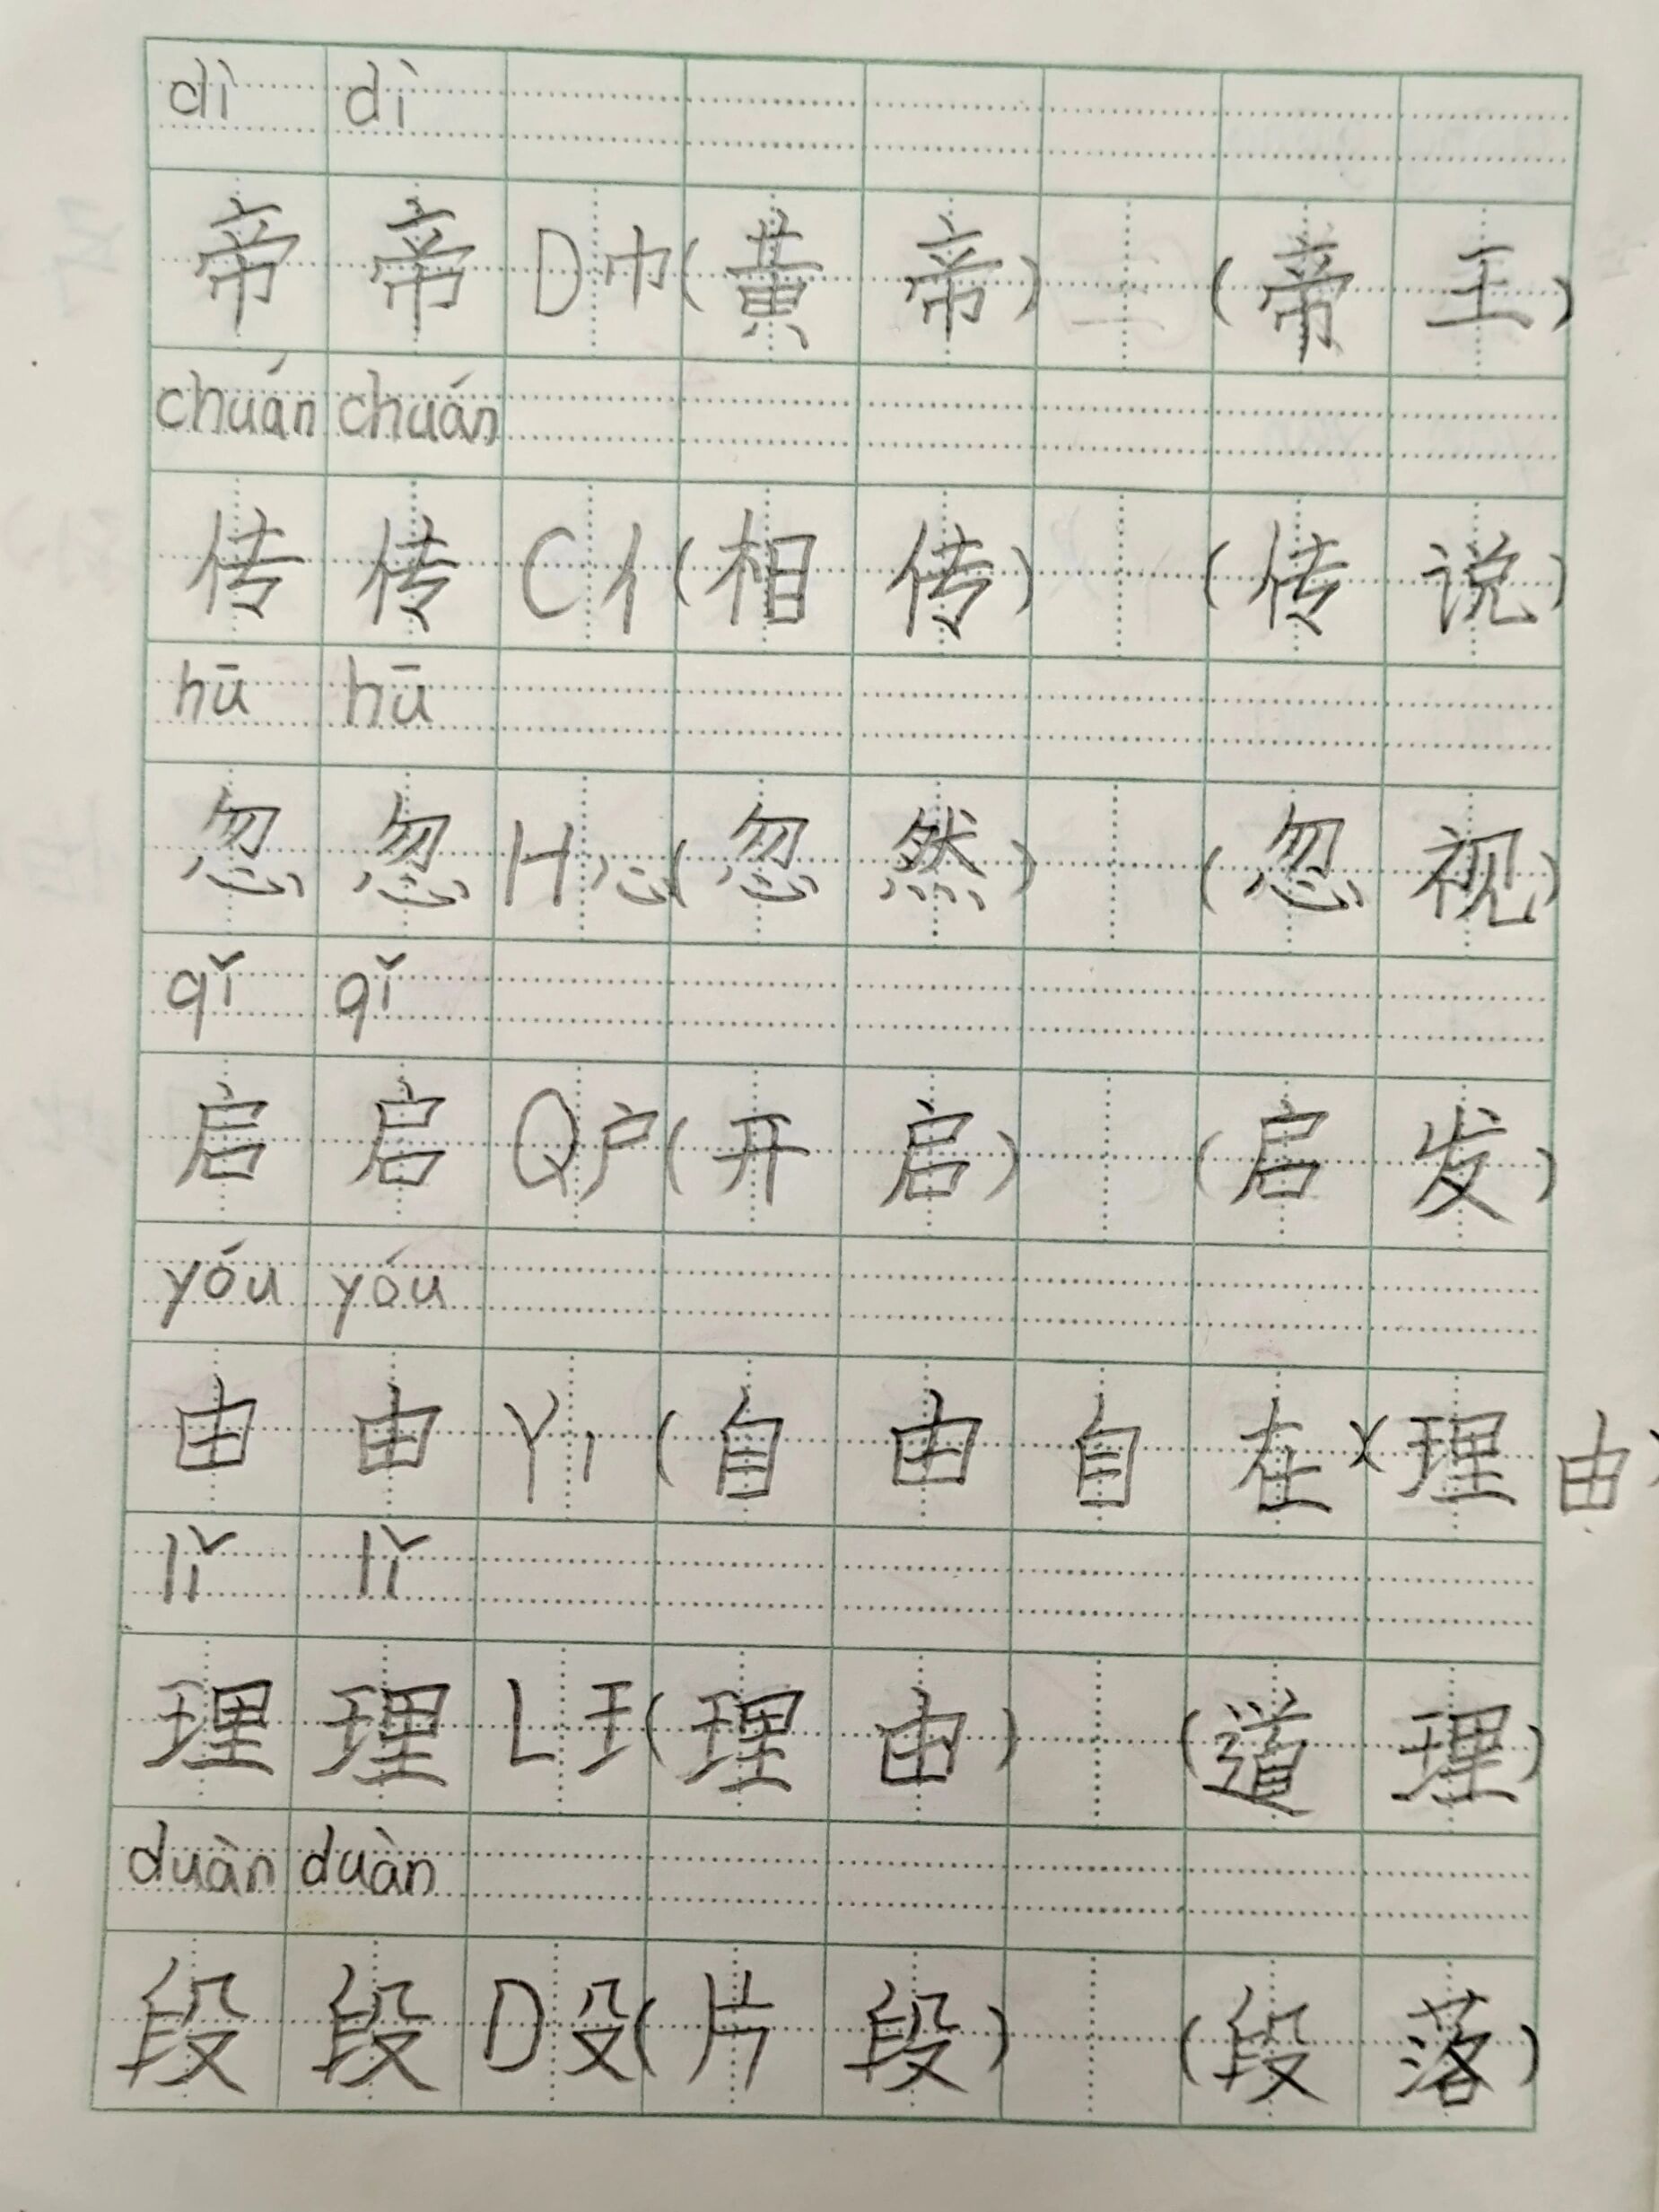 dì dì
帝 帝 D 巾 (黄 帝) (帝 王)
chuán chuán
传 传 C 亻 (相 传) (传 说)
hū hū
忽 忽 H 心 (忽 然) (忽 视)
qǐ qǐ
启 启 Q 户 (开 启) (启 发)
yóu yóu
由 由 Y 丨 (自 由 自 在)(理 由)
lǐ lǐ
理 理 L 王 (理 由) (道 理)
duàn duàn
段 段 D 殳 (片 段) (段 落)